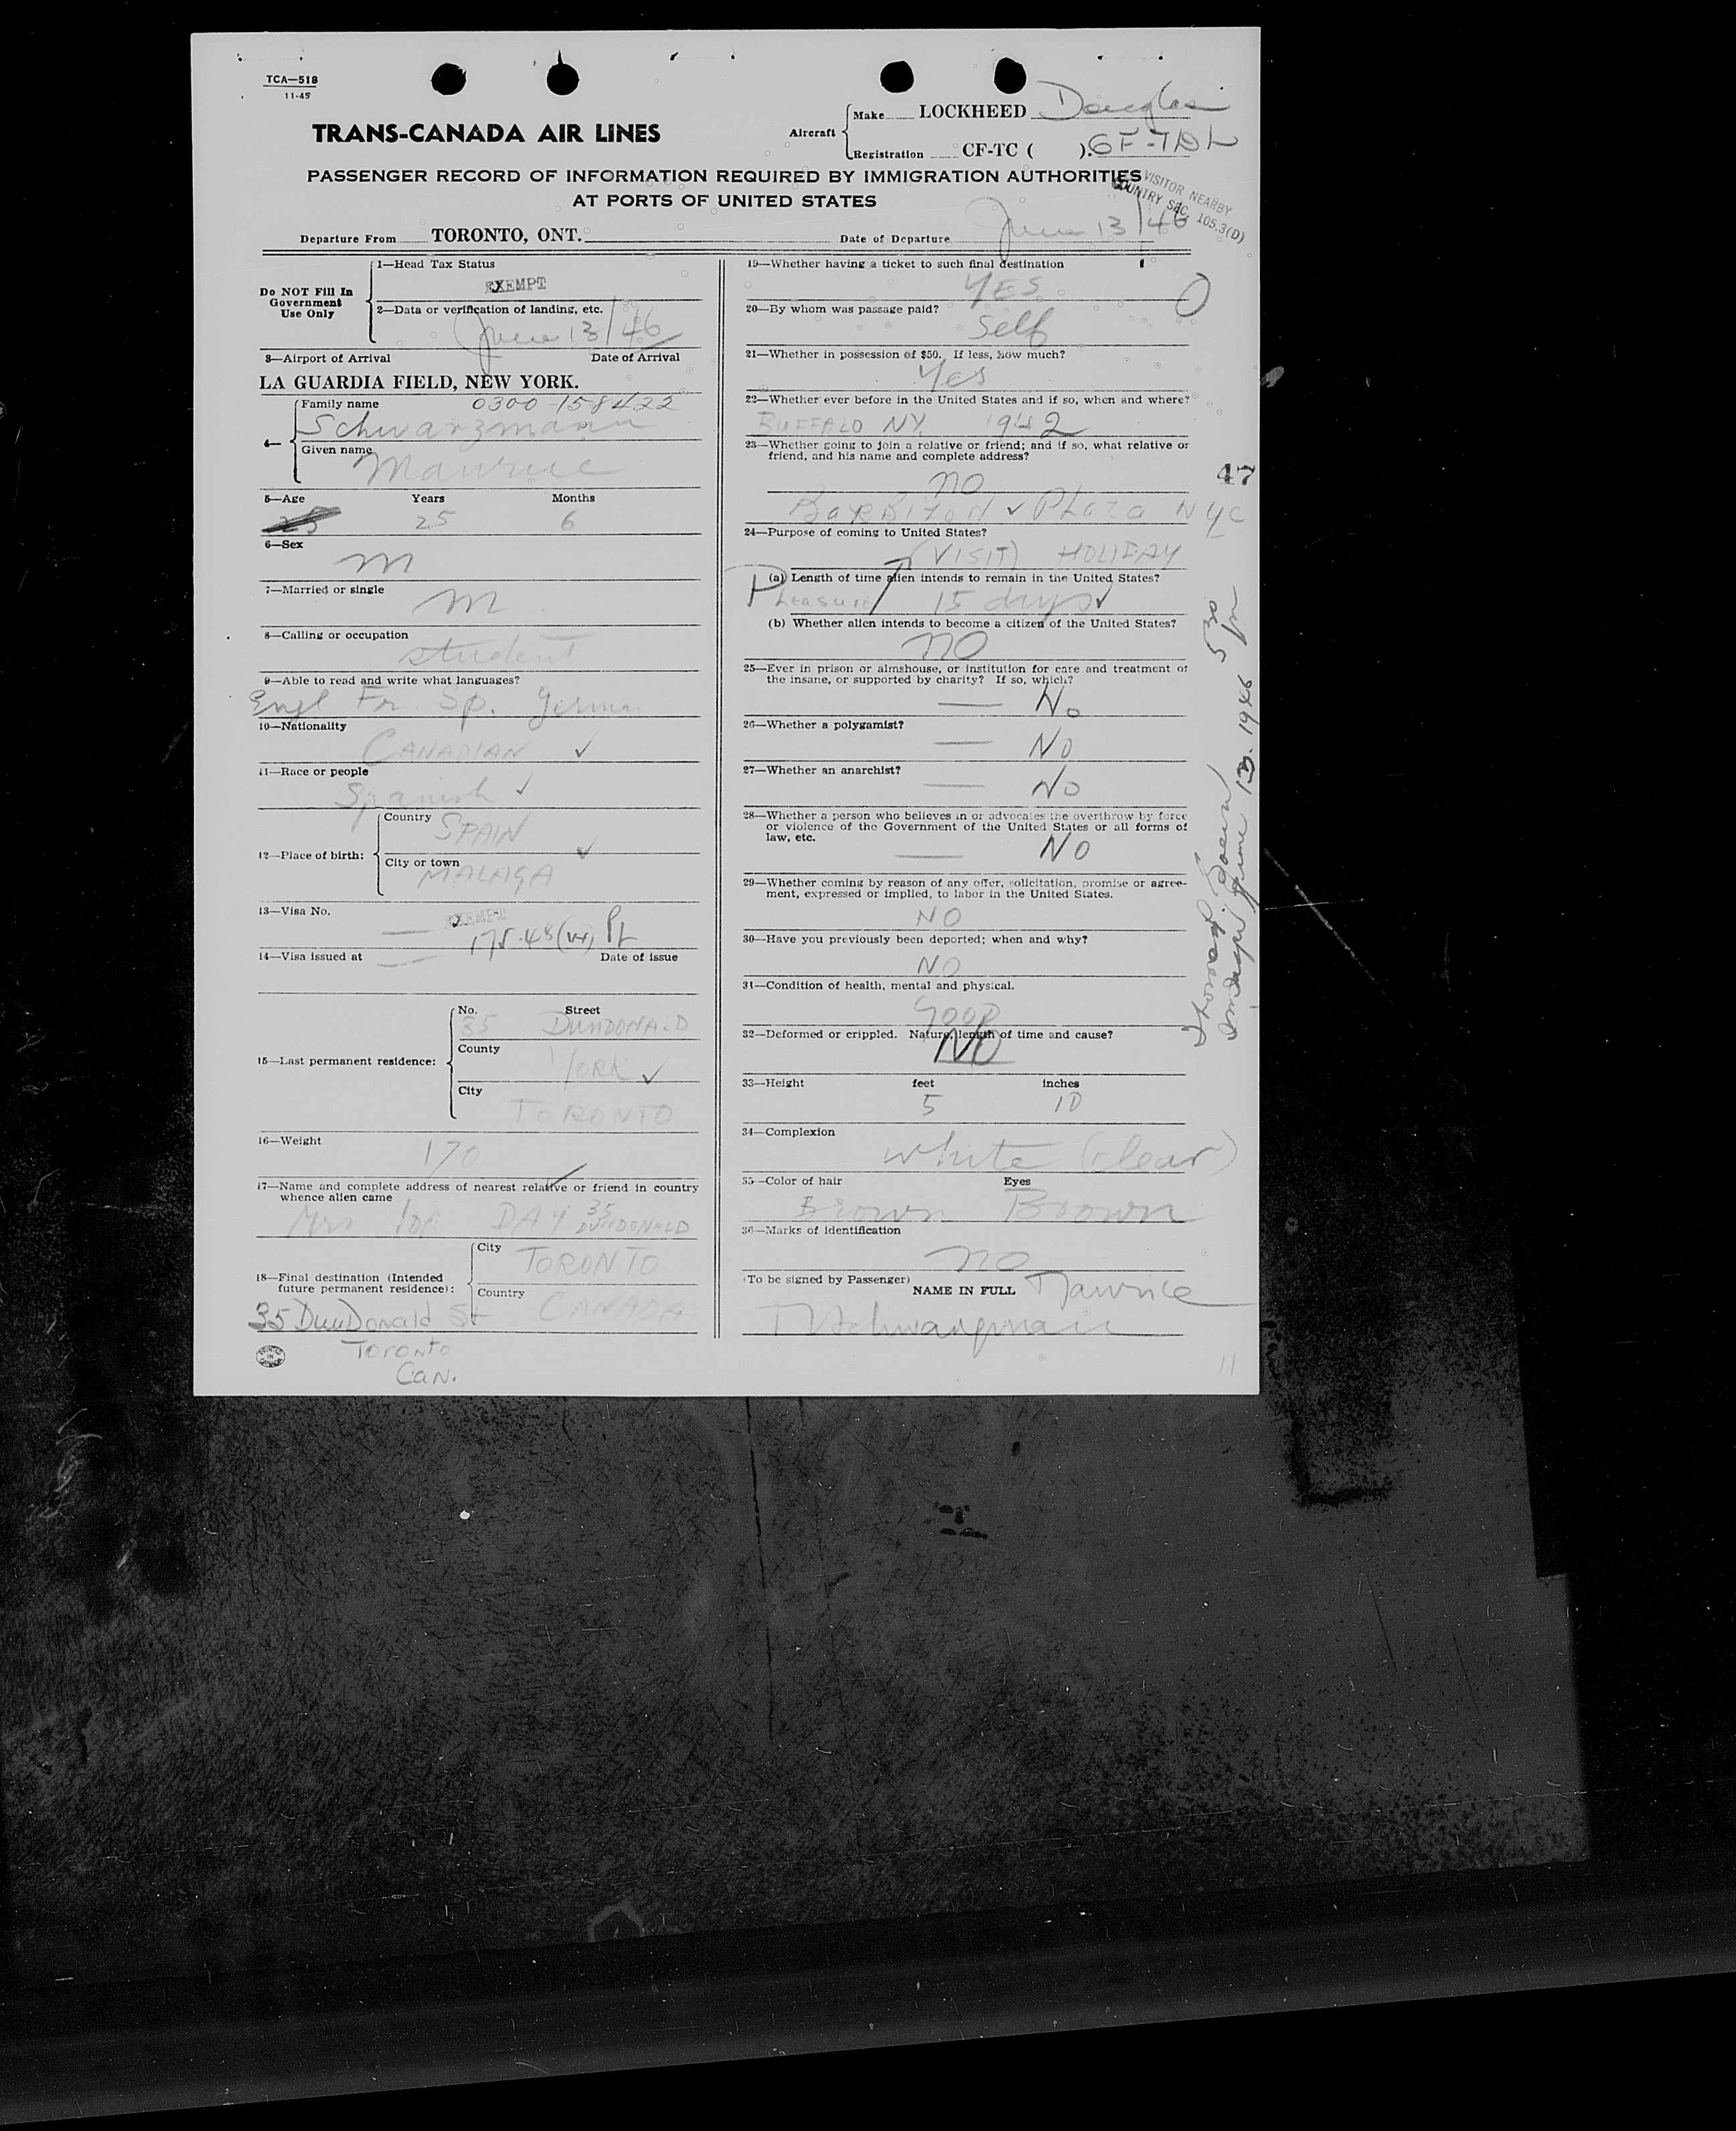 TCA—518
11-45
TRANS-CANADA AIR LINES
Aircraft
Make LOCKHEED Douglas
Registration CF-TC ( ). CF-TDL
PASSENGER RECORD OF INFORMATION REQUIRED BY IMMIGRATION AUTHORITIES
AT PORTS OF UNITED STATES
VISITOR NEARBY
COUNTRY SEC. 105.3(D)
Departure From TORONTO, ONT. Date of Departure June 13/46
Do NOT Fill In
Government
Use Only
1—Head Tax Status
EXEMPT
2—Data or verification of landing, etc.
June 13/46
3—Airport of Arrival Date of Arrival
LA GUARDIA FIELD, NEW YORK.
4—
Family name 0300-158422
Schwarzmann
Given name
Maurice
5—Age Years Months
25 25 6
6—Sex
M
7—Married or single
M
8—Calling or occupation
student
9—Able to read and write what languages?
Engl Fr. Sp. German
10—Nationality
CANADIAN ✓
11—Race or people
Spanish ✓
12—Place of birth:
Country
SPAIN
City or town
MALAGA
13—Visa No.
EXEMPT
14—Visa issued at Date of issue
15—Last permanent residence:
No. Street
35 DUNDONALD
County
YORK ✓
City
TORONTO
16—Weight
170
17—Name and complete address of nearest relative or friend in country
whence alien came
Mrs IDA DAY 35 DUNDONALD
18—Final destination (Intended
future permanent residence):
City
TORONTO
Country
CANADA
35 DunDonald St
Toronto
Can.
19—Whether having a ticket to such final destination
YES
20—By whom was passage paid?
Self
21—Whether in possession of $50. If less, how much?
Yes
22—Whether ever before in the United States and if so, when and where?
BUFFALO NY. 1942
23—Whether going to join a relative or friend; and if so, what relative or
friend, and his name and complete address?
no
BARBIZON ✓ PLAZA NYC
47
24—Purpose of coming to United States?
(VISIT) HOLIDAY
(a) Length of time alien intends to remain in the United States?
Pleasure 15 days ✓
(b) Whether alien intends to become a citizen of the United States?
NO
25—Ever in prison or almshouse, or institution for care and treatment of
the insane, or supported by charity? If so, which?
— No
26—Whether a polygamist?
— NO
27—Whether an anarchist?
— No
28—Whether a person who believes in or advocates the overthrow by force
or violence of the Government of the United States or all forms of
law, etc.
— NO
29—Whether coming by reason of any offer, solicitation, promise or agree-
ment, expressed or implied, to labor in the United States.
NO
30—Have you previously been deported; when and why?
NO
31—Condition of health, mental and physical.
GOOD
32—Deformed or crippled. Nature, length of time and cause?
NO
33—Height feet inches
5 10
34—Complexion
white (clear)
35—Color of hair Eyes
Brown Brown
36—Marks of identification
no
(To be signed by Passenger)
NAME IN FULL Maurice
Schwarzmann
June 13. 1946 530 pm
11
PRINTED
IN